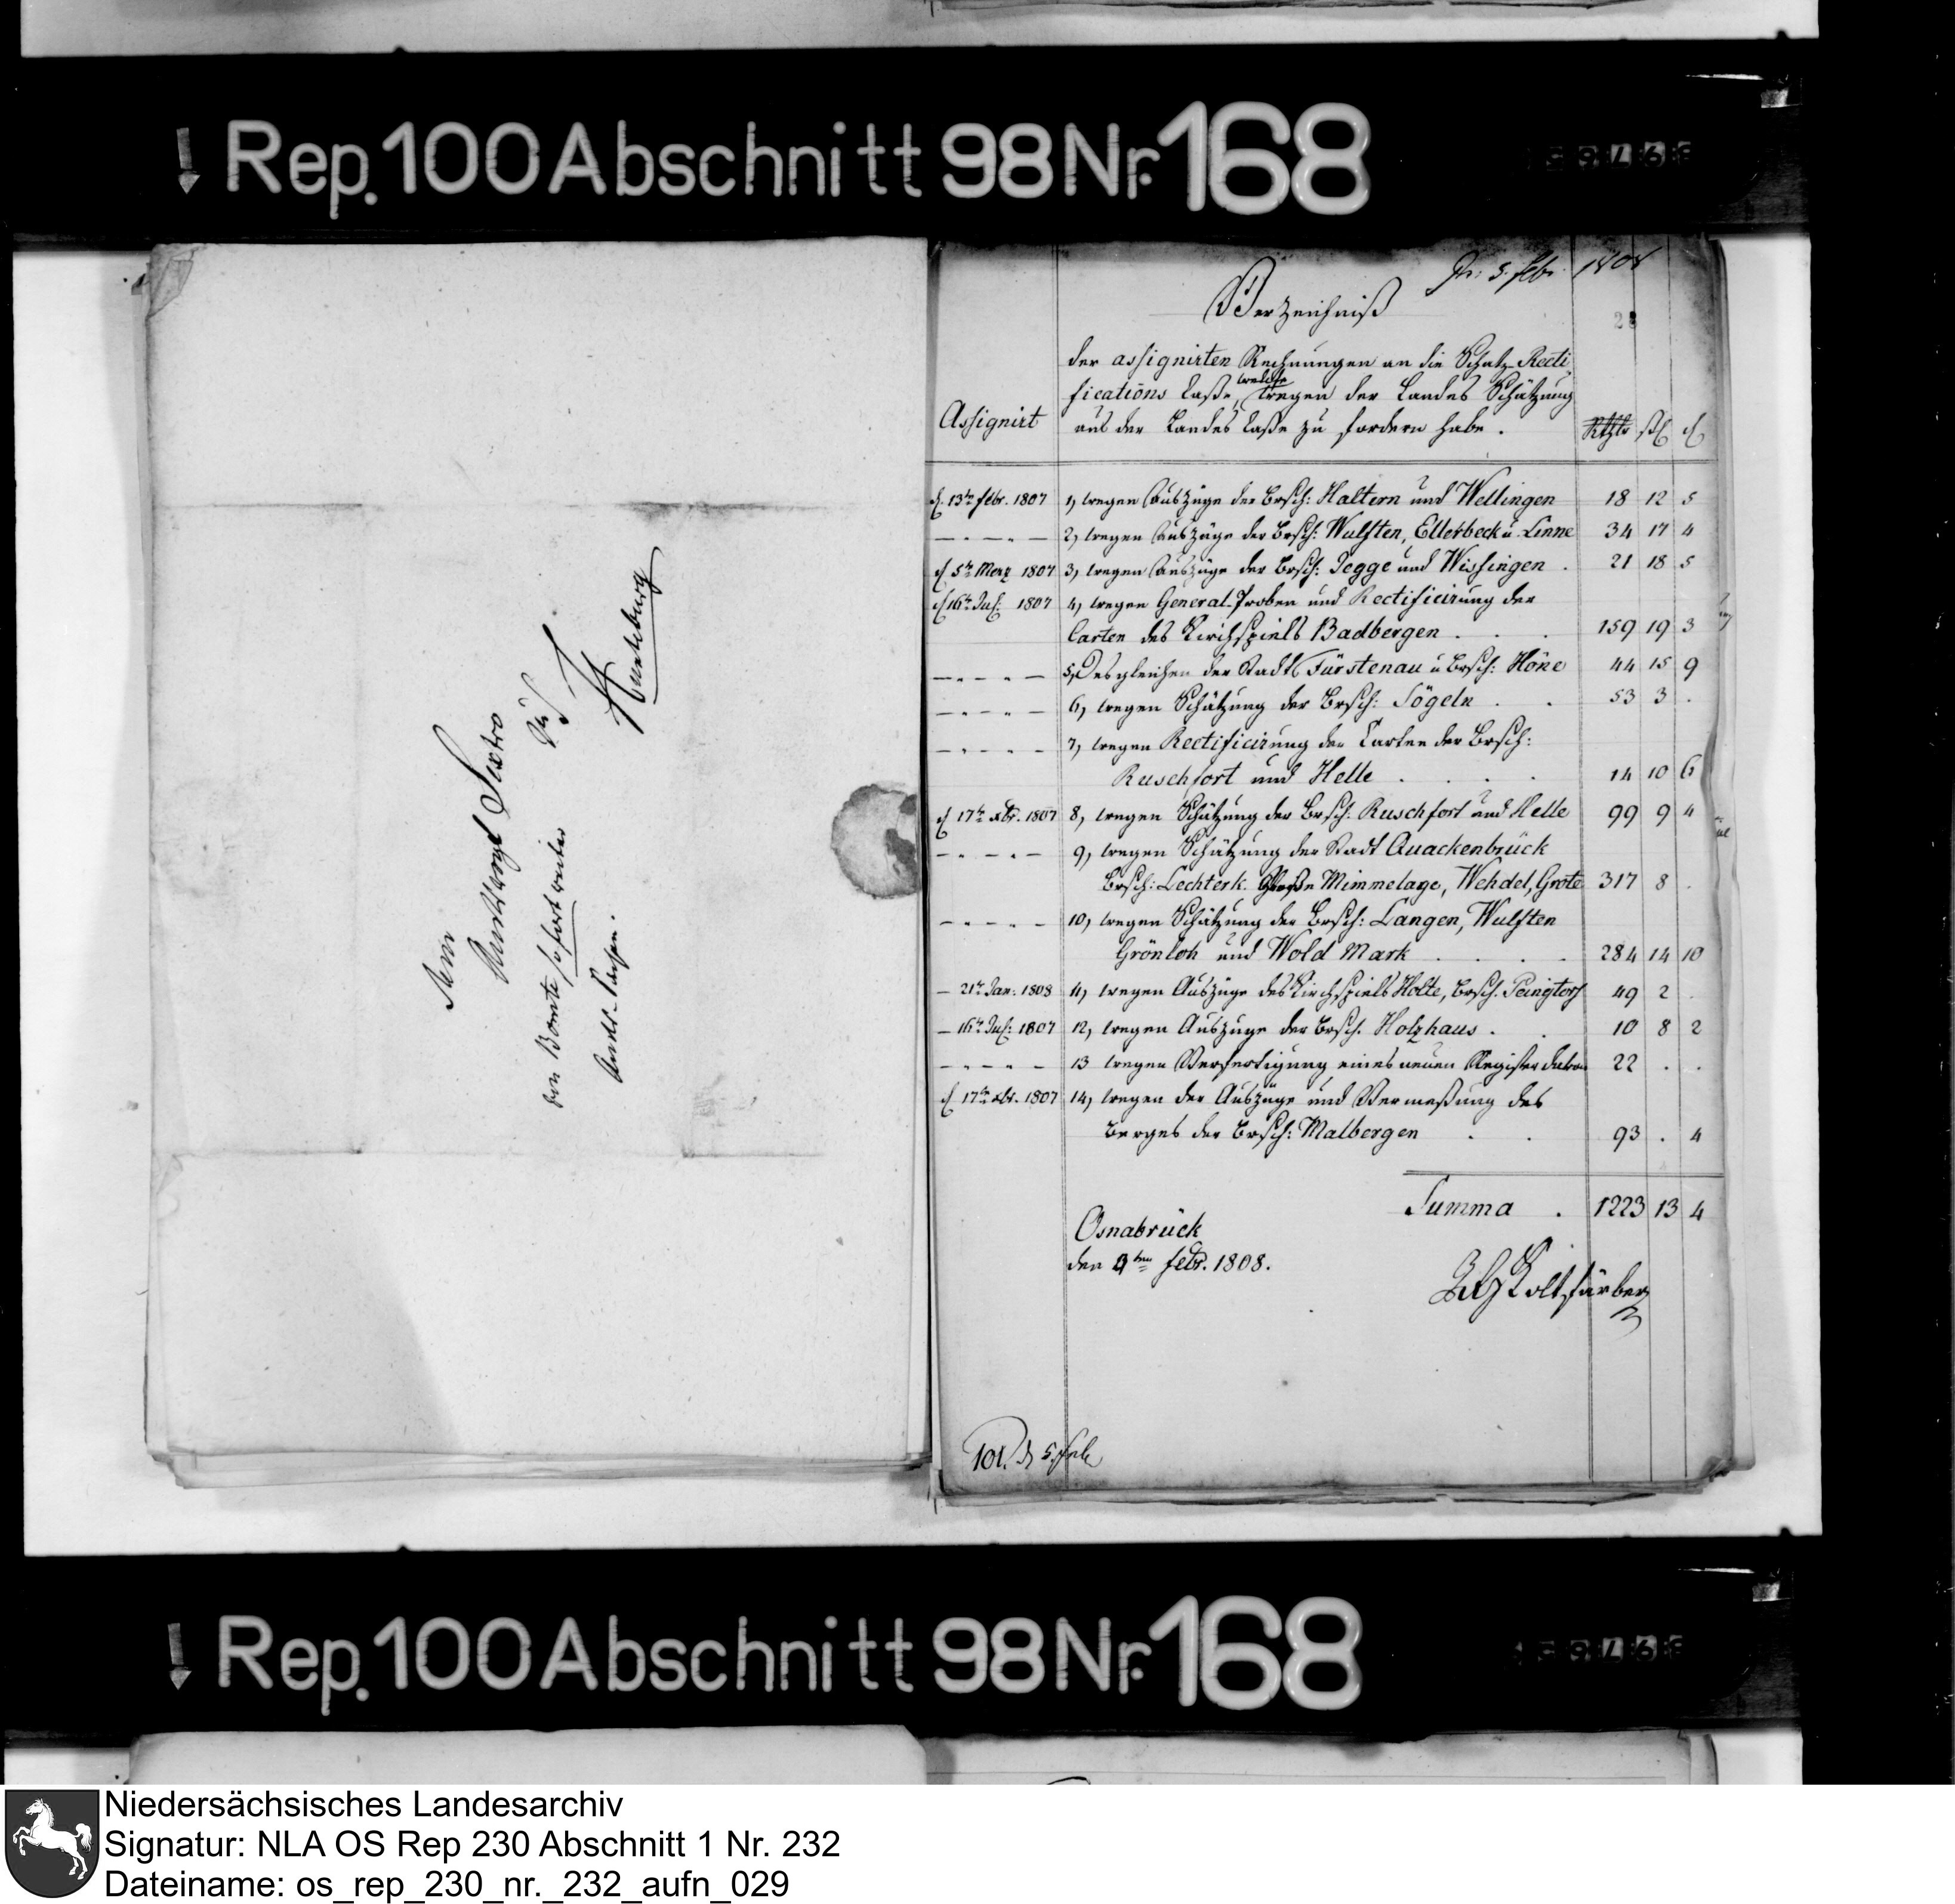 Rep. 100 Abschnitt 98 Nr. 168
Herr
Amtsvogt Sextro
zu
Hunteburg
Pr: 5 Febr. 1808
28
Verzeichniß
der assignirten Rechnungen an die Schatz Recti
fications Casse, welche wegen der Landes Schätzung
aus der Landes Casse zu fordern habe.
Assignirt
Rthlr ß d
d. 13ten Febr. 1807 1, wegen Auszüge der Brsch: Haltern und Wellingen 18 12 5
— . — . — 2, wegen Auszüge der Brsch: Wulften, Ellerbeck u. Linne 34 17 4
d 5ten Merz 1807 3, wegen Auszüge der Brsch: Jegge und Wissingen . 21 18 5
d 16ten Jul: 1807 4, wegen General-Proben und Rectificirung der
Carten des Kirchspiels Badbergen . . . 159 19 3
— . — . — 5, Desgleichen der Stadt Fürstenau u Brsch: Höne 44 15 9
— . — . — 6, wegen Schätzung der Brsch: Sögeln . . 53 3 .
— . — . — 7, wegen Rectificirung der Carten der Brsch:
Ruschfort und Helle . . . . 14 10 6
d 17ten xbr. 1807 8, wegen Schätzung der Brsch: Ruschfort und Helle 99 9 4
— . — . — 9, wegen Schätzung der Stadt Quackenbrück
Brsch: Lechterk. Große Mimmelage, Wehdel, Grote 317 8 .
— . — . — 10, wegen Schätzung der Brsch: Langen, Wulften
Grönloh und Wold Mark . . . . 284 14 10
— 21ten Jan: 1808 11, wegen Auszüge des Kirchspiels Holte, Brsch. 49 2 .
— 16ten Jul: 1807 12, wegen Auszüge der Brsch. Holzhaus . . 10 8 2
— . — . — 13 wegen Verfertigung eines neuen Register 22 . .
d 17ten xbr. 1807 14, wegen der Auszüge und Vermeßung des
Berges der Brsch: Malbergen . . 93 . 4
Summa . 1223 13 4
Osnabrück
den 4ten Febr. 1808.
Holtfärber
101.
Rep. 100 Abschnitt 98 Nr. 168
Niedersächsisches Landesarchiv
Signatur: NLA OS Rep 230 Abschnitt 1 Nr. 232
Dateiname: os_rep_230_nr._232_aufn_029